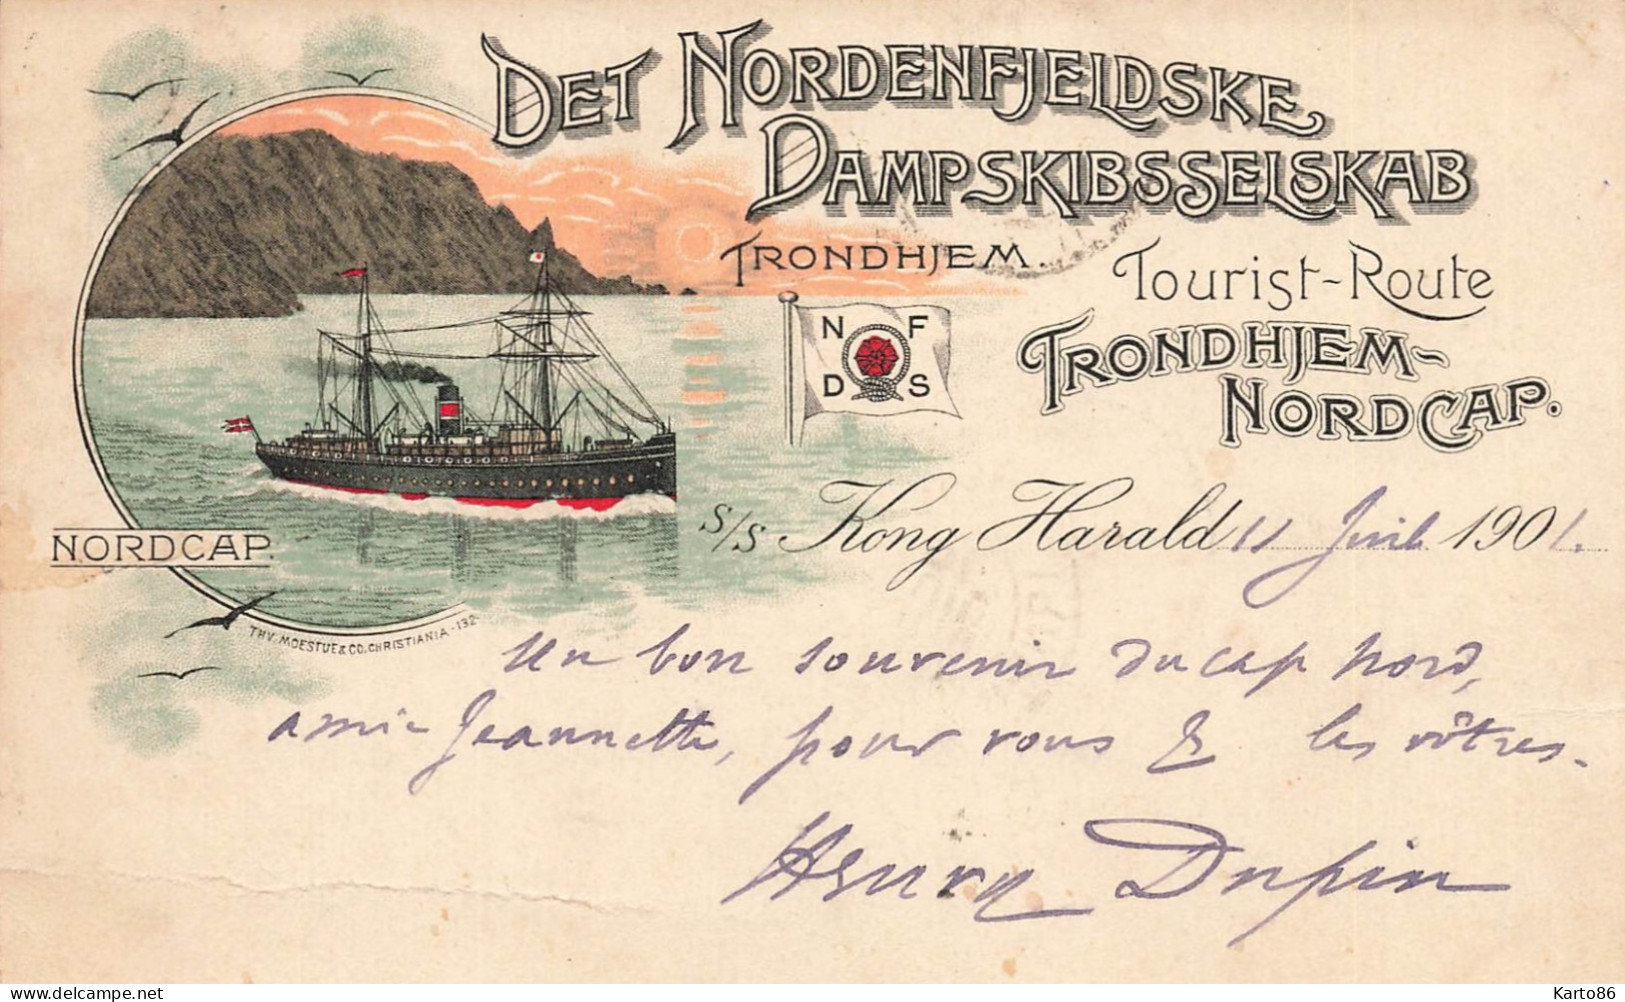 DET NORDENFJELDSKE
DAMPSKIBSSELSKAB
TRONDHJEM.
Tourist-Route
TRONDHJEM-
NORDCAP.
N F
D S
s/s Kong Harald 11 Juil. 1901.
NORDCAP.
THV. MOESTUE & CO. CHRISTIANIA - 132
Un bon souvenir du cap nord,
amie Jeannette, pour vous & les vôtres.
Henry Dupin
delcampe.net
Karto86